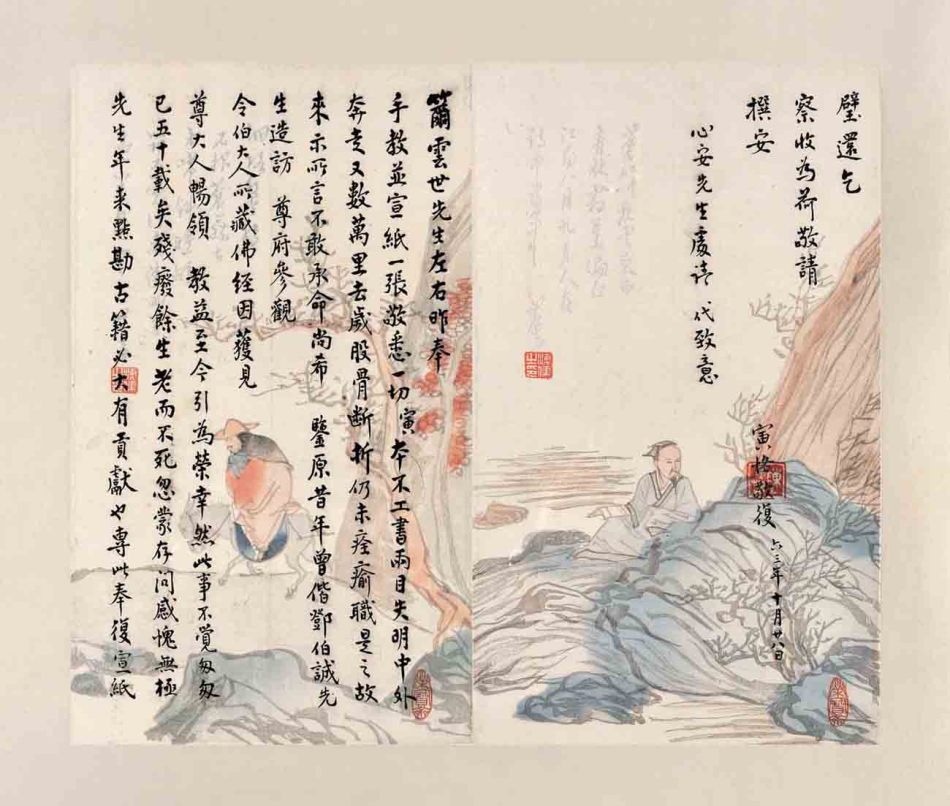 籋雲世先生左右昨奉
手教並宣紙一張敬悉一切寅本不工書兩目失明中外
奔走又數萬里去歲股骨斷折仍未痊瘉職是之故
來示所言不敢承命尚希 鑒原昔年曾偕鄧伯誠先
生造訪 尊府參觀
令伯大人所藏佛經因獲見
尊大人暢領 教益至今引為榮幸然此事不覺匆匆
已五十載矣殘廢餘生老而不死忽蒙存問感愧無極
先生年來點勘古籍必大有貢獻也專此奉復宣紙
璧還乞
察收為荷敬請
撰安
心安先生處請 代致意
寅恪敬復 六三年十月廿八日